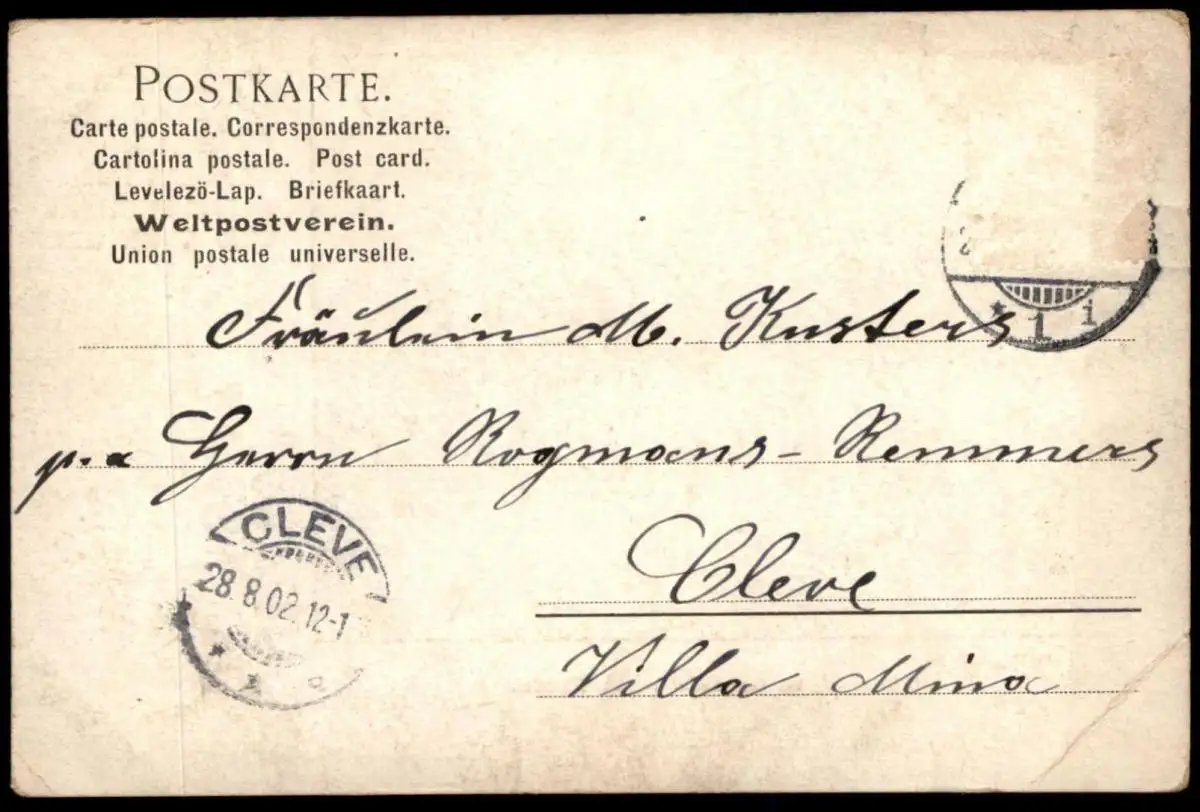 POSTKARTE.
Carte postale. Correspondenzkarte.
Cartolina postale. Post card.
Levelezö-Lap. Briefkaart.
Weltpostverein.
Union postale universelle.
2
* 1 i
Fräulein M. Kusters
p. a Herrn Rogmans - Remmers
CLEVE
28.8.02.12-1
Cleve
Villa Mina